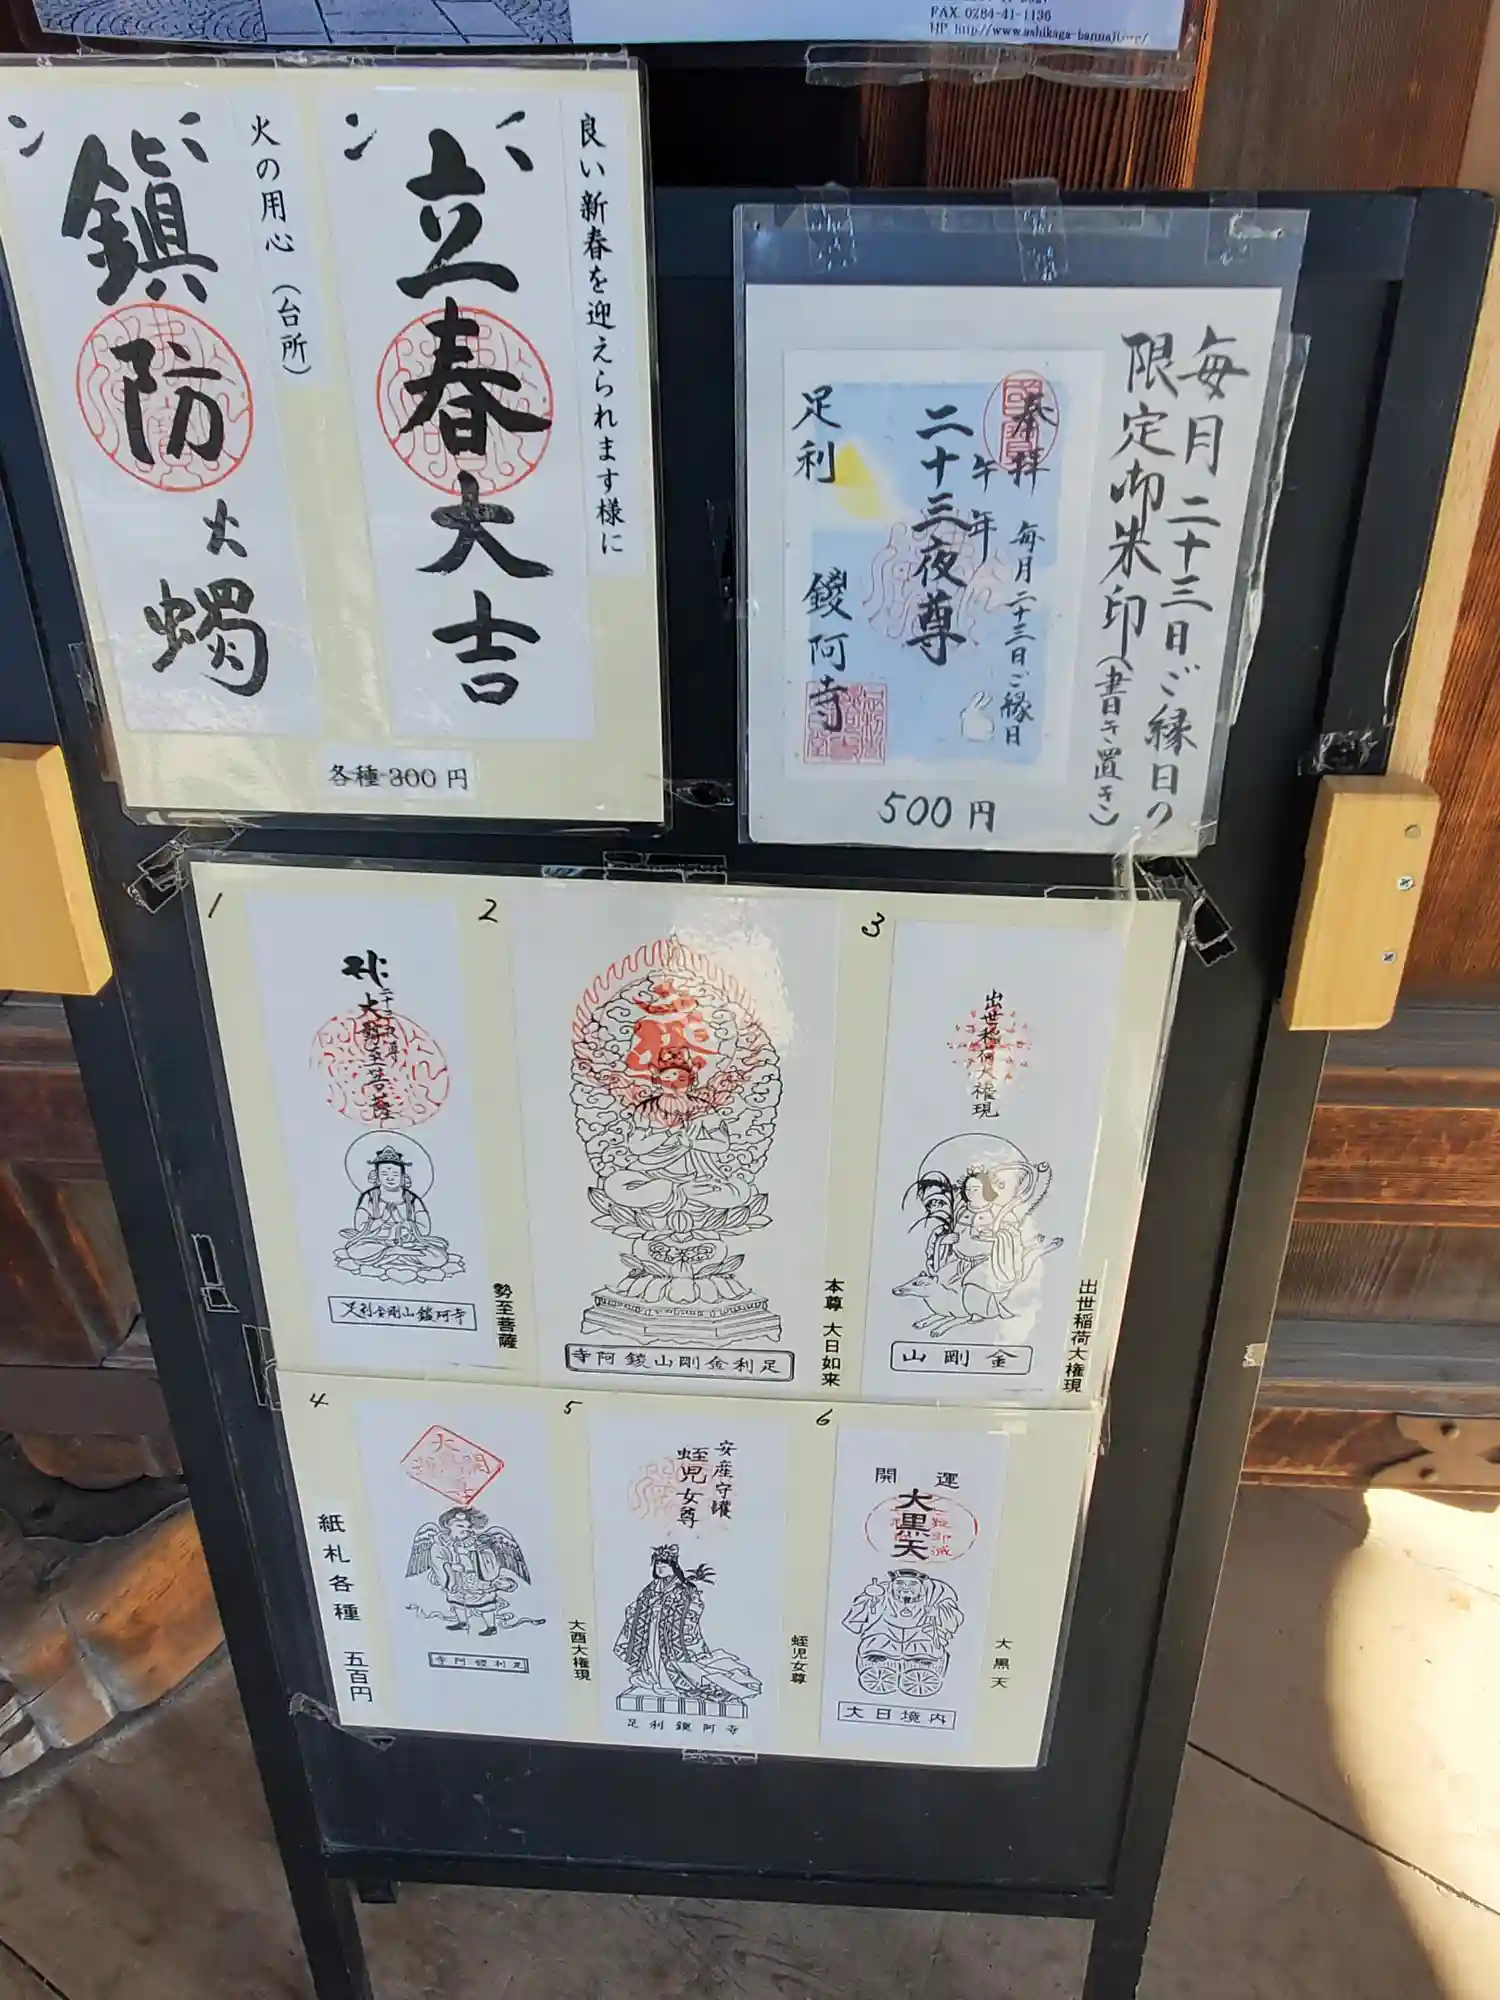 FAX 0284-41-1136
HP http://www.ashikaga-bannaji.org/
鎮防火燭
火の用心(台所)
立春大吉
良い新春を迎えられます様に
各種 300 円
毎月二十三日ご縁日の
限定御朱印(書き置き)
奉拝
毎月二十三日ご縁日
午年
二十三夜尊
足利
鑁阿寺
500円
1
二十三夜尊
大勢至菩薩
足利金剛山鑁阿寺
勢至菩薩
2
寺阿鑁山剛金利足
本尊 大日如来
3
出世稲荷大権現
山剛金
出世稲荷大権現
4
寺阿鑁利足
大酉大権現
5
安産守護
蛭児女尊
足利鑁阿寺
蛭児女尊
6
開運
大黒天
大日境内
大黒天
紙札各種 五百円